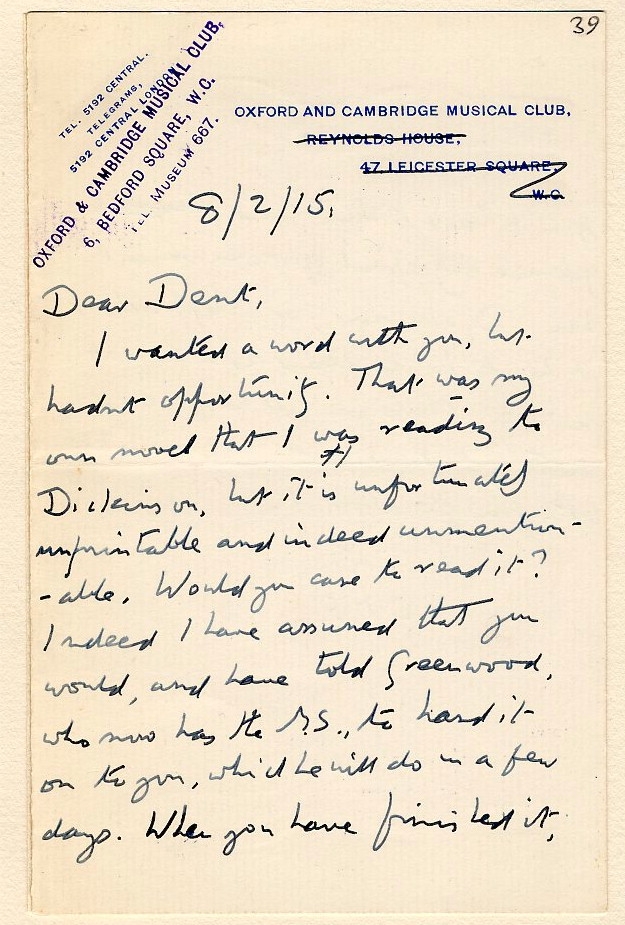 39
TEL. 5192 CENTRAL.
TELEGRAMS,
5192 CENTRAL LONDON.
OXFORD & CAMBRIDGE MUSICAL CLUB,
6, BEDFORD SQUARE, W.C.
TEL. MUSEUM 667.
OXFORD AND CAMBRIDGE MUSICAL CLUB,
REYNOLDS HOUSE,
47, LEICESTER SQUARE,
W.C.
8/2/15.
Dear Dent,
I wanted a word with you, but
hadnt opportunity. That was my
own novel that I was reading to
Dickinson, but it is unfortunately
unprintable and indeed unmention-
-able. Would you care to read it?
Indeed I have assumed that you
would, and have told Greenwood,
who now has the M.S., to hand it
on to you, which he will do in a few
days. When you have finished it,